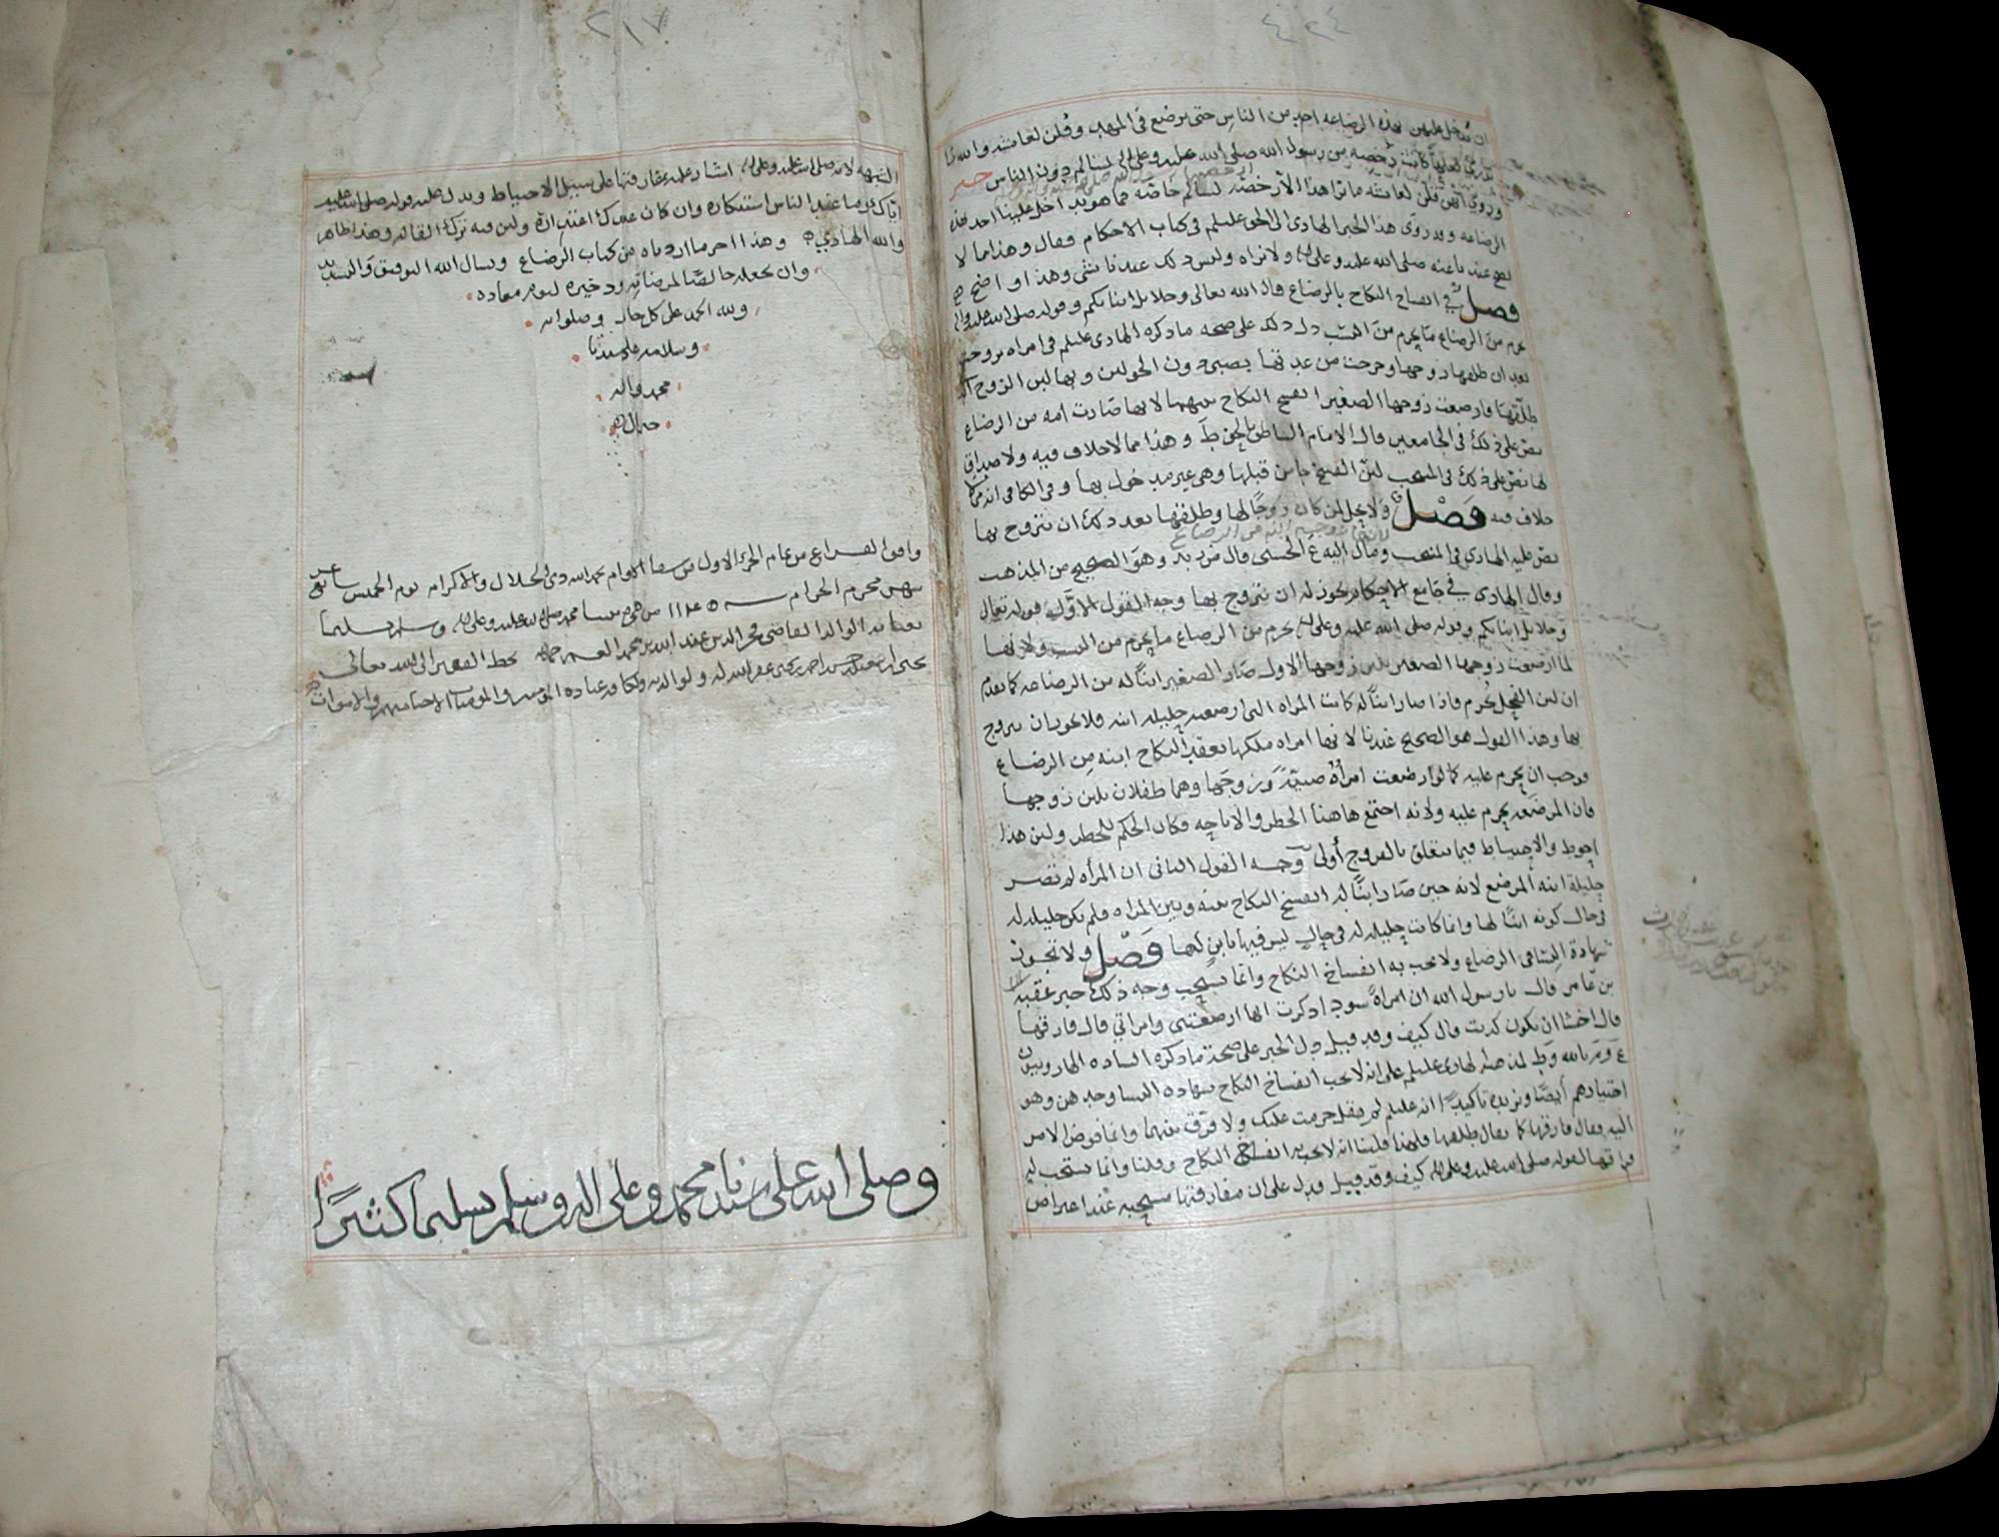 ٤٣٤
ان يدخل عليهن بهذه الرضاعه احد من الناس حتى يرضع في المهد وقلن لعائشة والله ما
ندري لعلها كانت رخصه من رسول الله صلى الله عليه وعلى اله لسالم دون الناس خبر
وروي انهن قلن لعائشه ما نرا هذا الا رخصه لسالم خاصه فما هو بداخل علينا احد بهذه
الرضاعه وقد روى هذا الخبر الهادي الى الحق عليلم في كتاب الاحكام وقال وهذا مما لا
يصح عندنا عنه صلى الله عليه وعلى اله ولا نراه وليس ذلك عندنا بشي وهذا واضح
فصل في انفساخ النكاح بالرضاع قال الله تعالى وحلائل ابنائكم وقوله صلى الله عليه واله
يحرم من الرضاع ما يحرم من النسب دل ذلك على صحه ما ذكره الهادي عليلم في امراه تزوجت
بعد ان طلقها زوجها وخرجت من عدتها بصبي دون الحولين وبها لبن الزوج الذي
طلقها فارضعت زوجها الصغير انفسخ النكاح بينهما لانها صارت امه من الرضاع
نص على ذلك في الجامعين قال الامام الناطق بالحق ط وهذا مما لا خلاف فيه ولا صداق
لها نص على ذلك في المنتخب لان الفسخ جا من قبلها وهي غير مدخول بها وفي الكافي انه مما لا
خلاف فيه فصل ولا يحل لمن كان زوجا لها وطلقها بعد ذلك ان يتزوج بها
نص عليه الهادي في المنتخب ومال اليه ع الحسني قال م بد وهو الصحيح من المذهب
وقال الهادي في جامع الاحكام يجوز له ان يتزوج بها وجه القول الاول قوله تعالى
وحلائل ابنائكم وقوله صلى الله عليه وعلى اله يحرم من الرضاع ما يحرم من النسب ولانها
لما ارضعت زوجها الصغير بلبن زوجها الاول صار الصغير ابنا له من الرضاعه كما تقدم
ان لبن الفحل يحرم فاذا صار ابنا له كانت المراه التي ارضعته حليله ابنه فلا يجوز ان يتزوج
بها وهذا القول هو الصحيح عندنا لانها امراه ملكها بعقد النكاح ابنه من الرضاع
فوجب ان يحرم عليه كما لو ارضعت امرأة صبية وزوجها وهما طفلان بلبن زوجها
فان المرضعه يحرم عليه ولانه اجتمع هاهنا الحظر والاباحه فكان الحكم للحظر ولان هذا
احوط والاحتياط فيما يتعلق بالفروج أولى وجه القول الثاني ان المرأه لم تصر
حليلة ابنه المرضع لانه حين صار ابنا له انفسخ النكاح بينه وبين المراه فلم تكن حليله له
في حال كونه ابنا لها وانما كانت حليله له في حال ليس فيها بابن لها فصل ولا تجوز
شهادة النسا في الرضاع ولا يجب به انفساخ النكاح وانما يستحب وجه ذلك خبر عقبه
بن عامر قال يا رسول الله ان امراة سودا ذكرت انها ارضعتني وامراتي قال فارقها
قال اخشا ان تكون كذبت قال كيف وقد قيل دل الخبر على صحة ما ذكره الساده الهارونيون
ع وم بالله وط لمذهب الهادي عليلم على انه لا يجب انفساخ النكاح بشهاده النسا وحدهن وهو
اختيارهم أيضا ونزيده تاكيدا انه عليلم لم يقل حرمت عليك ولا فرق بينهما وانما فوض الامر
اليه فقال فارقها كما يقال طلقها فلهذا قلنا انه لا يجب به انفساخ النكاح وقلنا وانما يستحب له
فراقها لقوله صلى الله عليه وعلى اله كيف وقد قيل فدل على ان مفارقتها مستحبه عند اعتراض
٢١٧
الشبهه لانه صلى الله عليه وعلى اله اشار عليه بمفارقتها على سبيل الاحتياط ويدل عليه قوله صلى الله عليه
اياك وما عند الناس استنكاره وان كان عندك اعتذاره ولان فيه ترك القاله وهذا ظاهر
والله الهادي وهذا اخر ما اردناه من كتاب الرضاع ونسال الله التوفيق والتسديد
وان يجعله خالصا لمرضاته وذخيره ليوم معاده
ولله الحمد على كل حال وصلواته
وسلامه على سيدنا
محمد واله
خير ال
وافق الفراغ من تمام الجزء الاول من شفا الاوام بحمد الله ذي الجلال والاكرام يوم الخميس سابع عشر
شهر محرم الحرام سنه ١١٤٥ من هجره سيدنا محمد صلى الله عليه وعلى اله وسلم تسليما
بعنايه الوالد القاضي فخر الدين عبد الله بن محمد بخط الفقير الى الله تعالى
يحيى بن حسن احمد يحيى غفر الله له ولوالديه ولكافه عباده المؤمنين والمؤمنات الاحيا منهم والاموات
وصلى الله على سيدنا محمد وعلى اله وسلم تسليما كثيرا